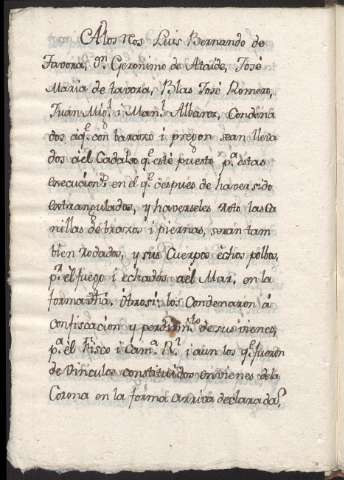 A los Rros Luis Bernardo de
Tavora, Dn. Geronimo de Ataide, José
Maria de tavora, Blas José Romero,
Juan Migl. i Manl. Albarez, Condena
dos aqe. con baraxo i pregon sean lleva
dos ael Cadalso qe. esté puesto pa. estas
execucions. en el qe. despues de haver sido
extrangulados, y haverseles roto las Ca
nillas de brazos i piernas, seran tam
bien rodados, y sus Cuerpos echos polbos,
pr. el fuego i echados ael Mar, en la
forma dha. Otrosi los Condenaron à
confiscacion y perdimto. de sus vienes,
pa. él Fisco i Cama. Rl. i aun los qe. fueron
de Vinculos constituidos en vienes de la
Corona en la forma arriva declarada.